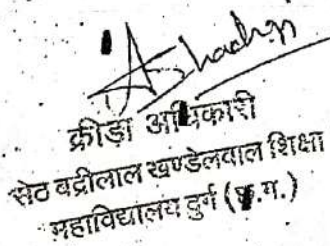 क्रीड़ा अधिकारी
सेठ बद्रीलाल खण्डेलवाल शिक्षा
महाविद्यालय दुर्ग (छ.ग.)